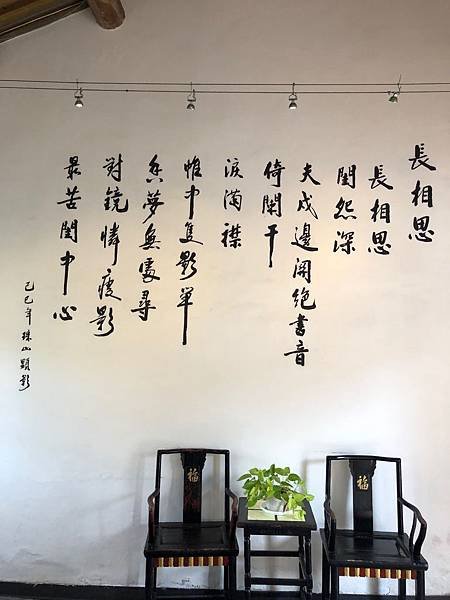 長相思
長相思
閨怨深
夫戍邊關絕書音
倚闌干
淚滿襟
帷中隻影單
夢無處尋
對鏡憐瘦影
最苦閨中心
己巳年珠山顯影
福
福